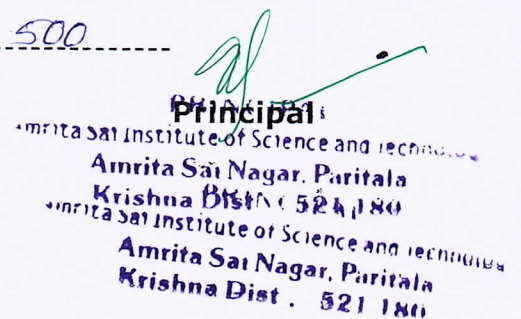 500
Principal
Amrita Sai Institute of Science and Technology
Amrita Sai Nagar, Paritala
Krishna Dist. 521 180
Amrita Sai Institute of Science and Technology
Amrita Sai Nagar, Paritala
Krishna Dist. 521 180